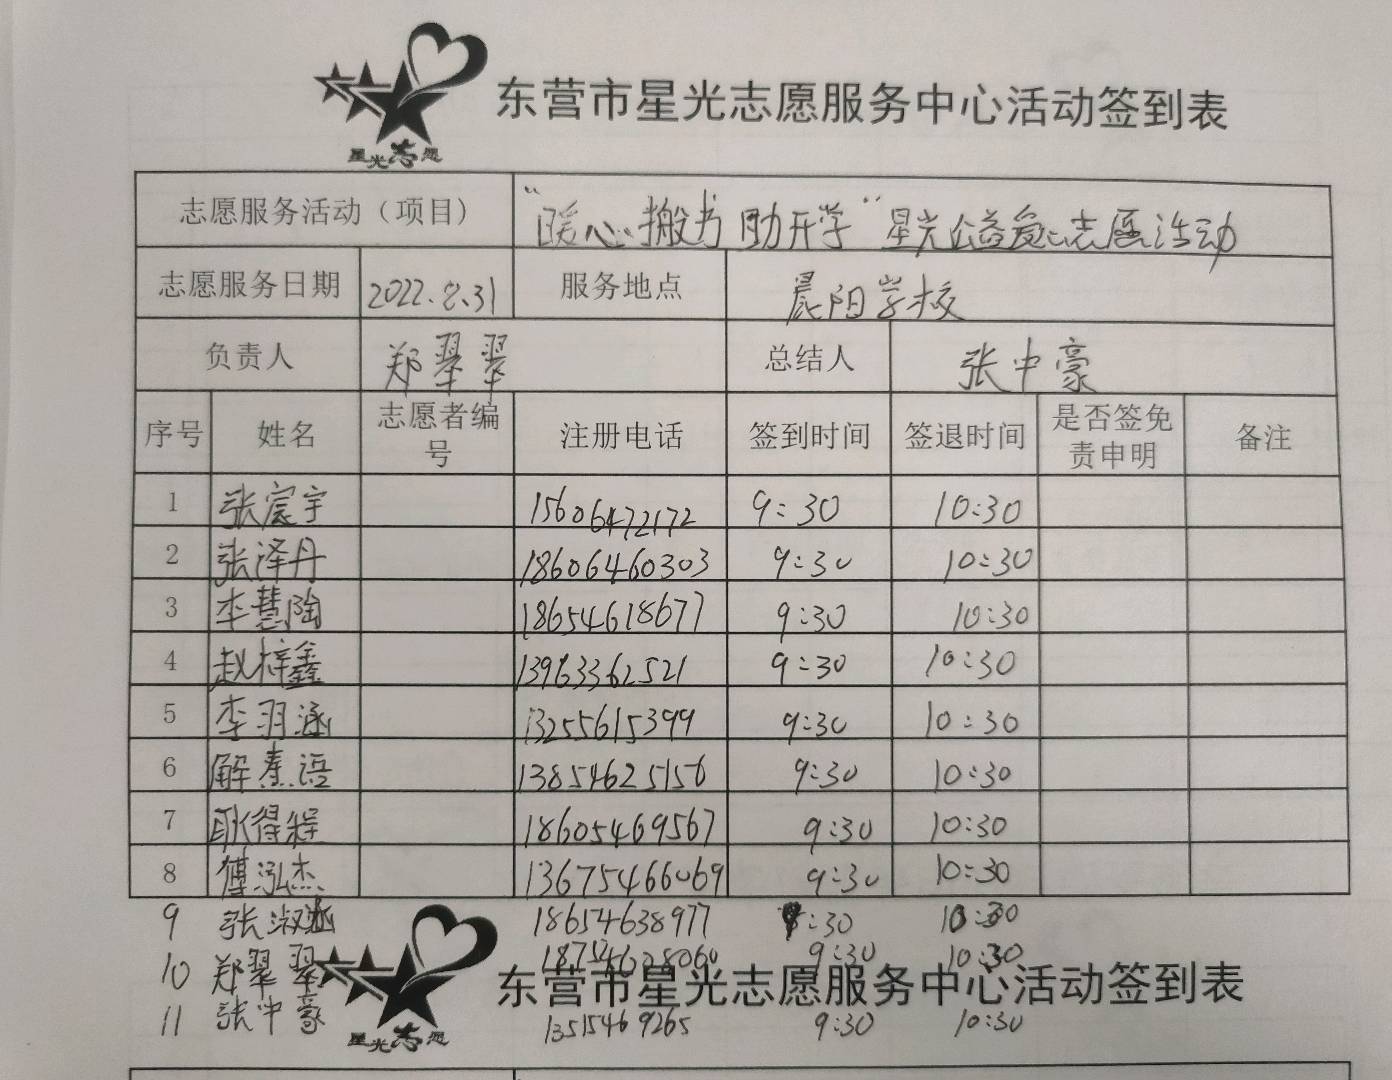 东营市星光志愿服务中心活动签到表
星光志愿
志愿服务活动（项目） “暖心搬书 助开学”星光公益爱心志愿活动
志愿服务日期 2022.8.31 服务地点 晨阳学校
负责人 郑翠翠 总结人 张中豪
序号 姓名 志愿者编号 注册电话 签到时间 签退时间 是否签免责申明 备注
1 张宸宇 15606472172 9:30 10:30
2 张泽丹 18606460303 9:30 10:30
3 李慧陶 18654618677 9:30 10:30
4 赵梓鑫 13963362521 9:30 10:30
5 李羽涵 13255615399 9:30 10:30
6 解素语 13854625156 9:30 10:30
7 耿得程 18605469567 9:30 10:30
8 傅泓杰 13675466069 9:30 10:30
9 张淑 18654638977 9:30 10:30
10 郑翠翠 9:30 10:30
东营市星光志愿服务中心活动签到表
11 张中豪 13515469265 9:30 10:30
星光志愿